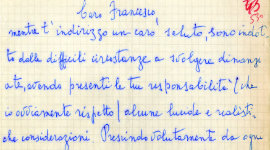 Caro Francesco,
mentre t'indirizzo un caro saluto, sono indot
to dalle difficili circostanze a svolgere dinanzi
a te, avendo presenti le tue responsabilità (che
io ovviamente rispetto) alcune lucide e realisti
che considerazioni. Prescindo volutamente da ogni